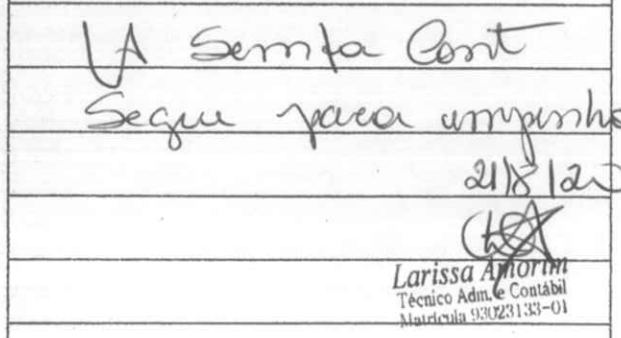 A Semfa Cont
Segue para empenho
21/8/20
Larissa Amorim
Técnico Adm. e Contábil
Matrícula 93023133-01